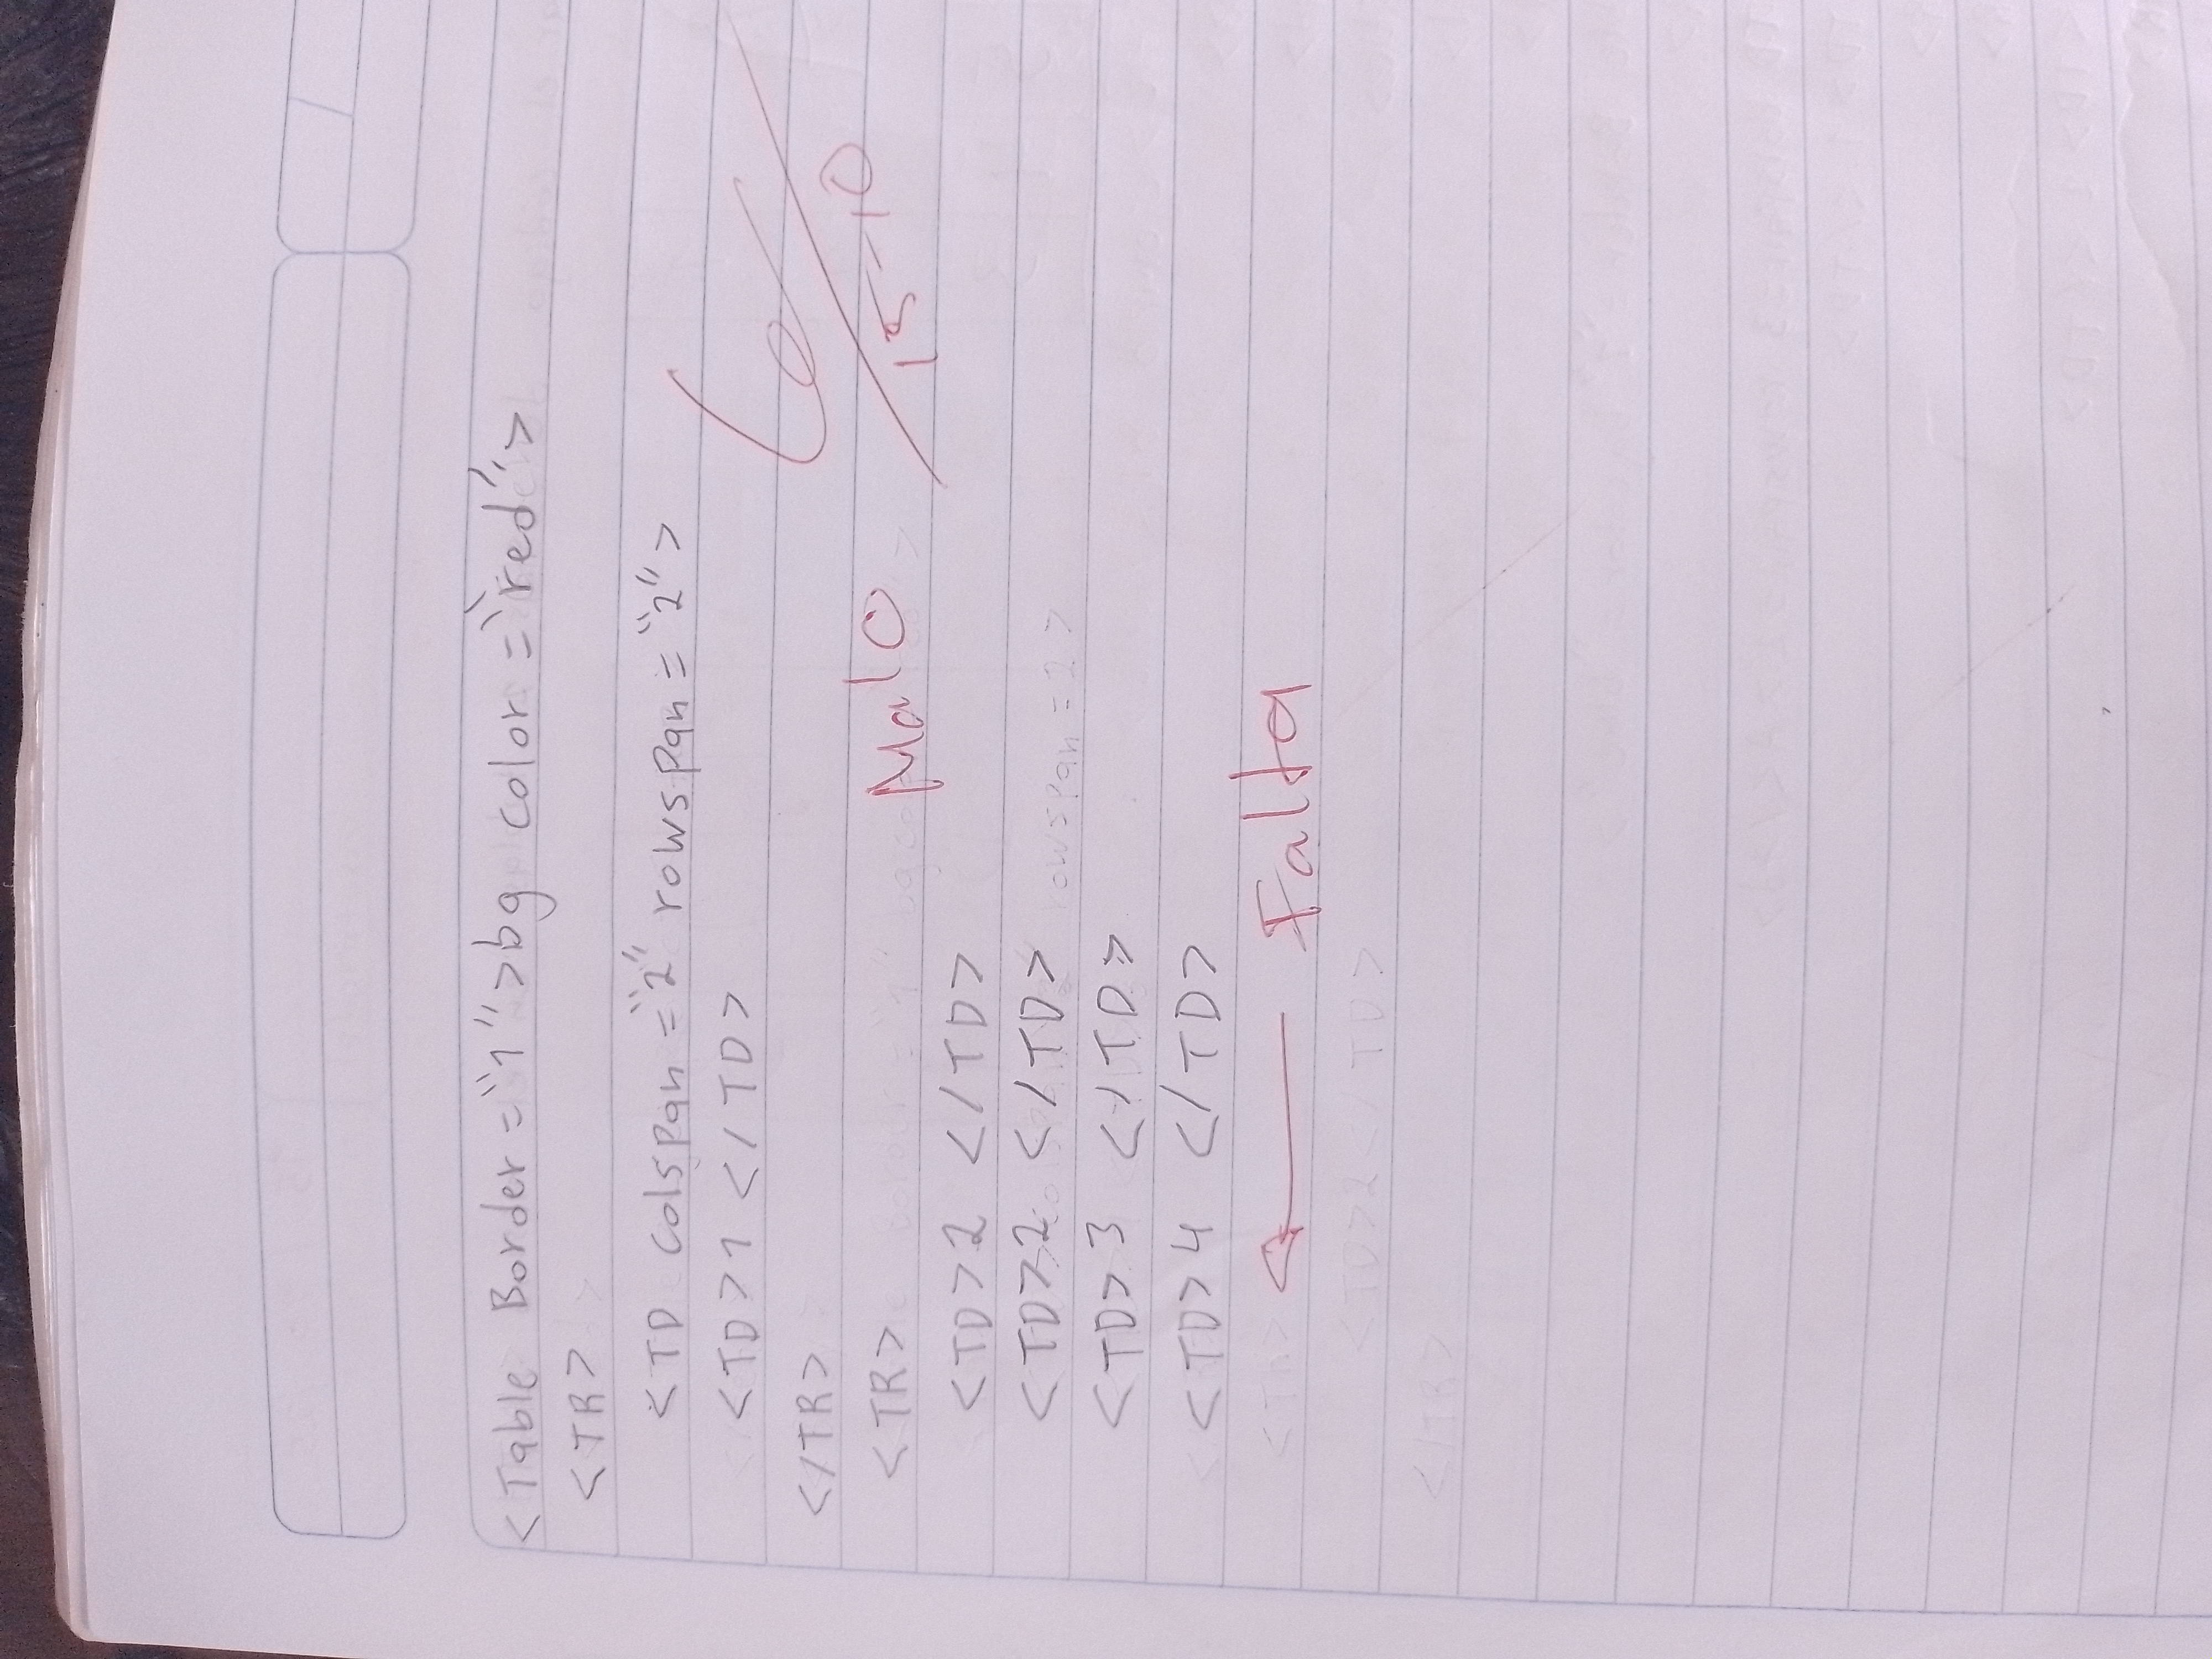 <Table Border="1">bg color="red">
<TR>
<TD colspan="2" rowspan="2">
<TD>1 </TD>
</TR>
<TR> Malo
<TD>2 </TD>
<TD>2 </TD>
<TD>3 </TD>
<TD>4 </TD>
<TR> Falta
<TD>2 </TD>
</TR>
6
15-10